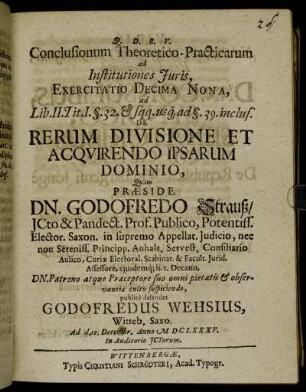 Q. D. B. V.
Conclusionum Theoretico-Practicarum
ad
Institutiones Juris,
EXERCITATIO DECIMA NONA,
ad
Lib. II. Tit. I. §. 32. & sqq. usq; ad §. 39. inclus.
DE
RERUM DIVISIONE ET
ACQVIRENDO IPSARUM
DOMINIO,
Quam
PRÆSIDE
DN. GODOFREDO Strauß/
JCto & Pandect. Prof. Publico, Potentiss.
Elector. Saxon. in supremo Appellat. Judicio, nec
non Sereniss. Principp. Anhalt. Servest. Consiliario
Aulico, Curiæ Electoral. Scabinat. & Facult. Jurid.
Assessore, ejusdemq; h. t. Decano,
DN. Patrono atque Præceptore suo omni pietatis & obser-
vantiæ cultu suspiciendo,
publicè defendet
GODOFREDUS WEHSIUS,
Witteb. Saxo.
Ad d. Decembr. Anno M DCLXXXV.
In Auditorio JCtorum.
WITTENBERGÆ,
Typis CHRISTIANI SCHRÖDTERI, Acad. Typogr.